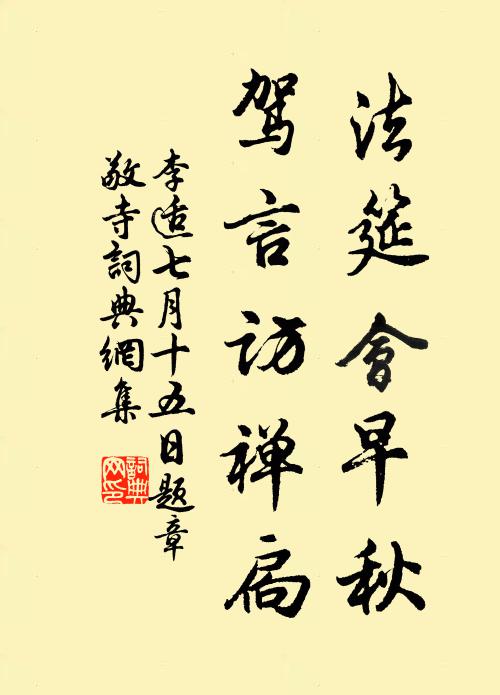 法筵會早秋
駕言訪禅扃
李适七月十五日题章
敬寺詞典網集
詞典網印